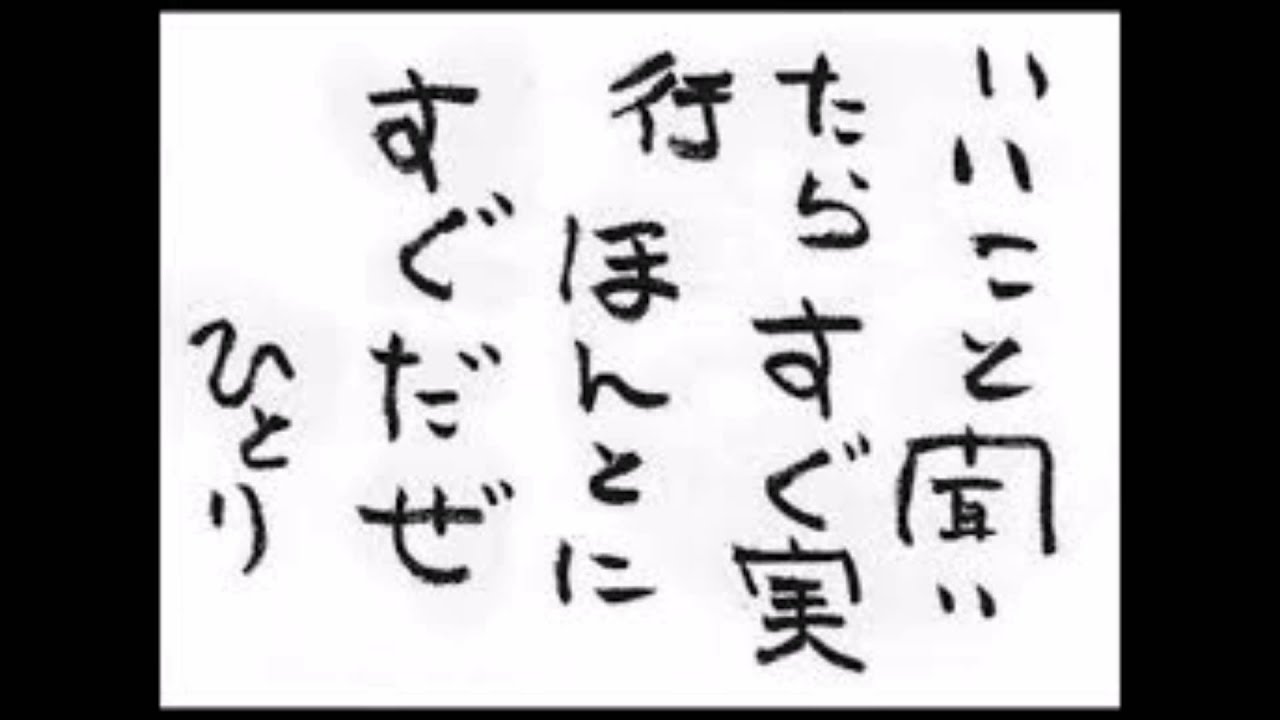 いいこと聞い
たらすぐ実
行 ほんとに
すぐだぜ
ひとり